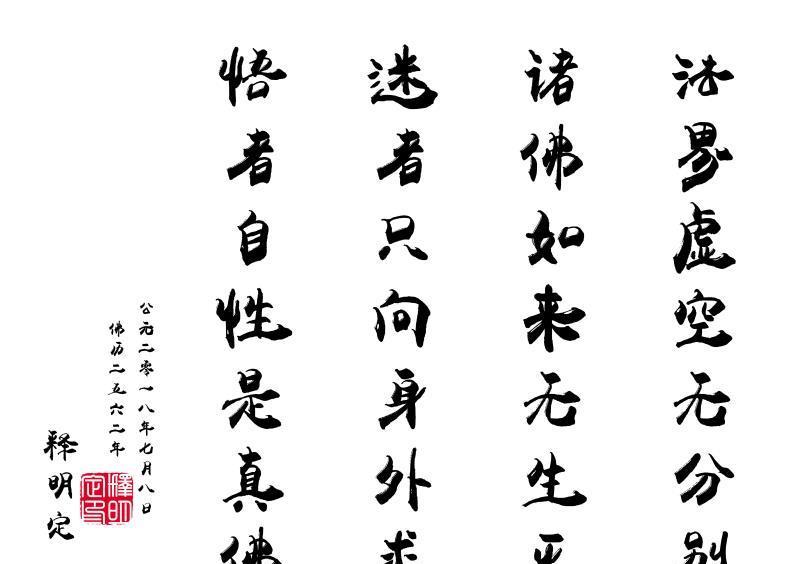 法界虚空无分别
诸佛如来无生平
迷者只向身外求
悟者自性是真佛
公元二零一八年七月八日
佛历二五六二年
释明定
釋明定印